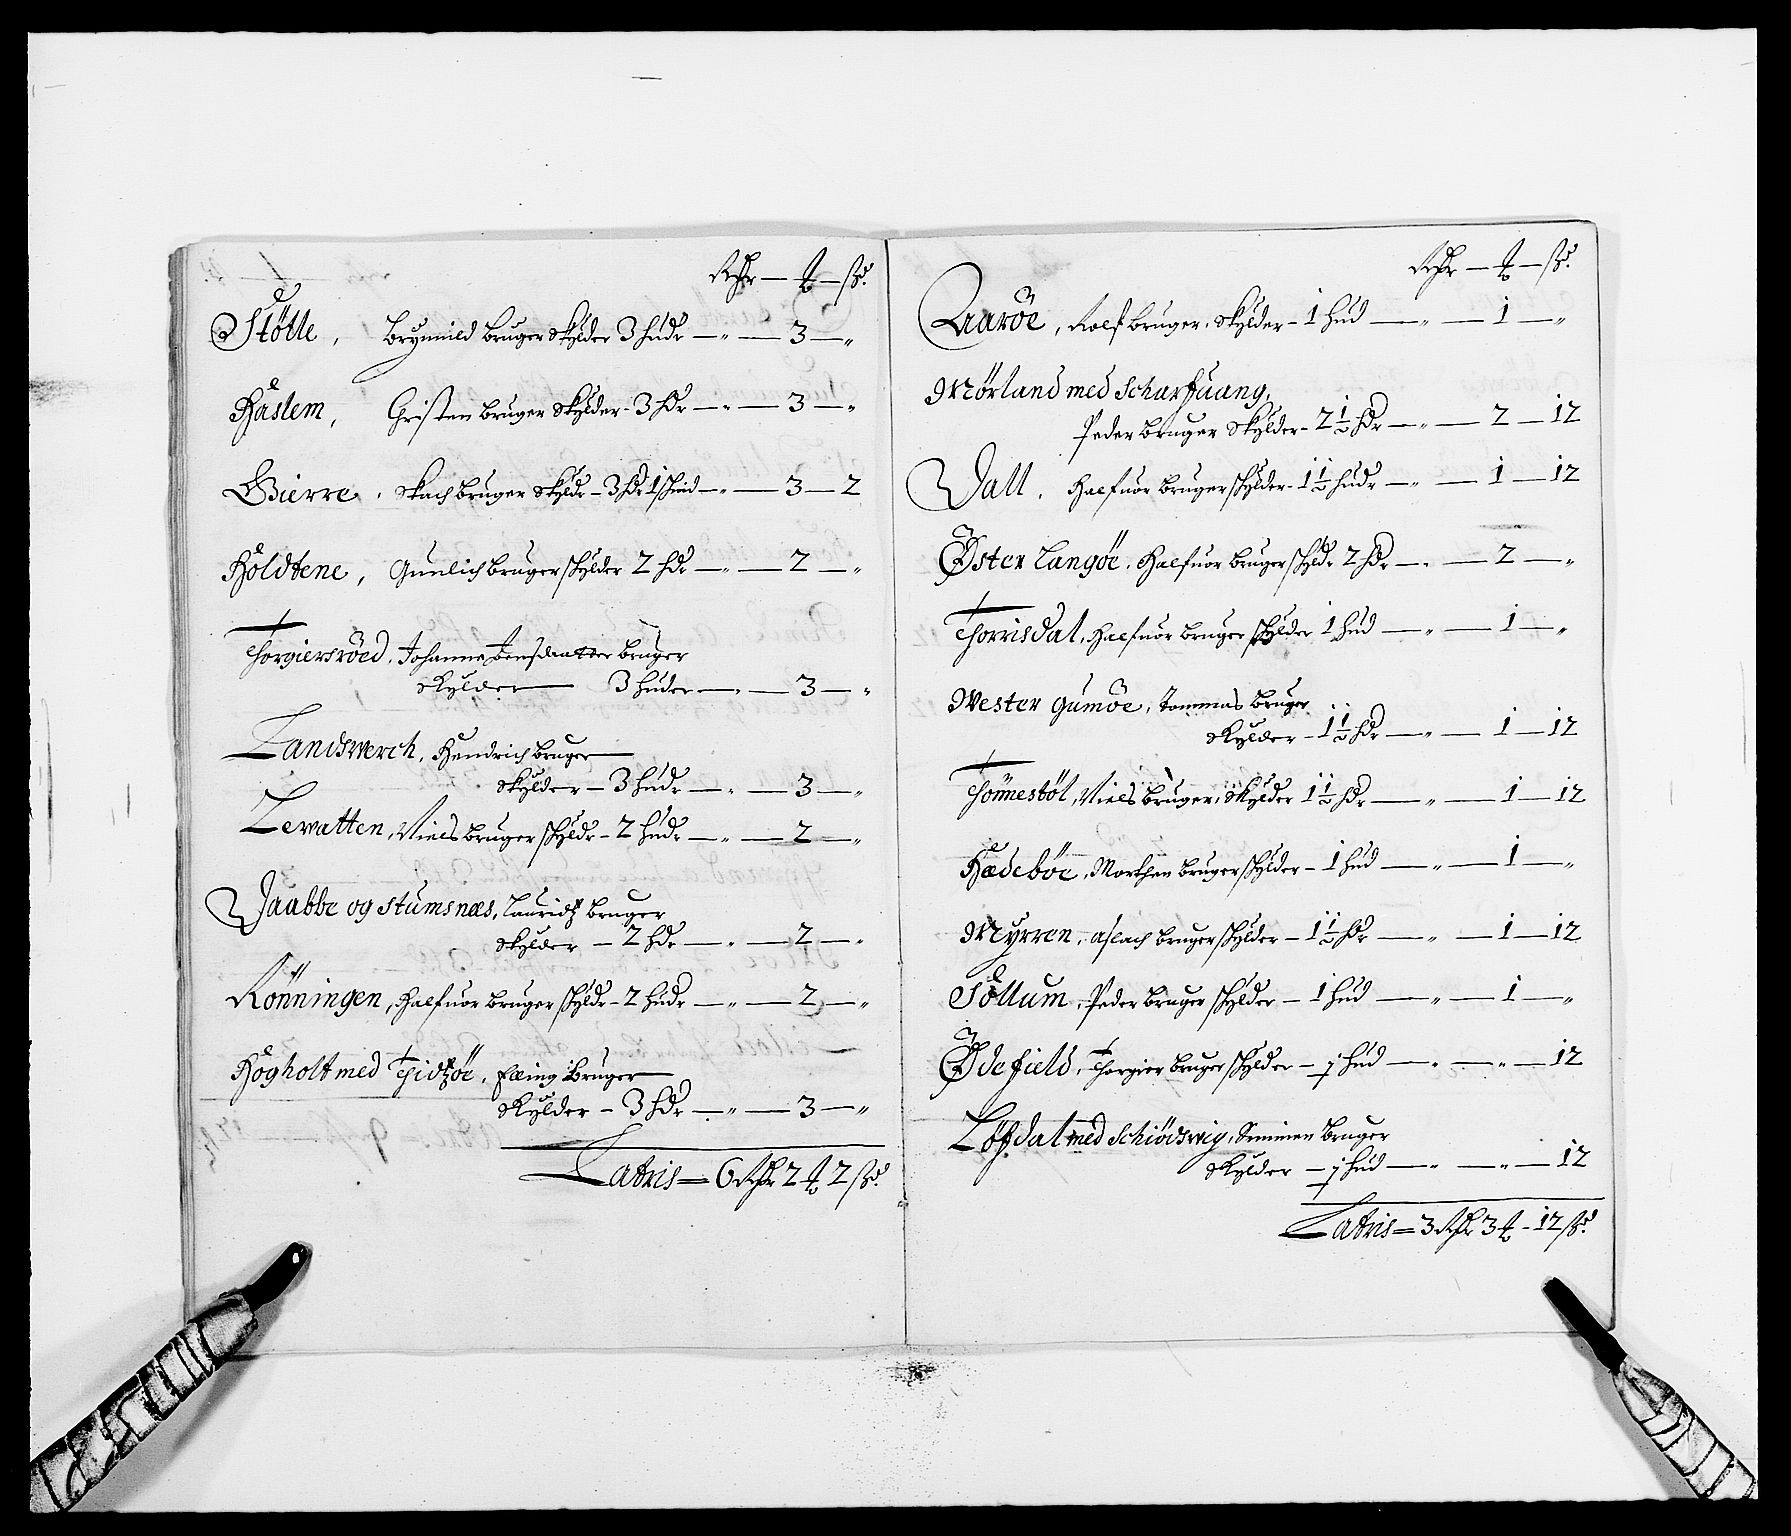 Rdr — ₰ — ß.
Stötle, Brynnild bruger Skylder 3 hudr — „ — 3 — „
Haslem, Christen bruger Skylder - 3 hdr — „ — 3 — „
Gierre, Skach bruger Skyldr - 3 hdr 1 skind — „ — 3 — 2
Holdtene, Gunlich bruger skylder 2 hdr — „ — 2 — „
Thorgiersröed, Johanne Jensdaatter bruger
skylder — 3 huder — „ — 3 — „
Landswerch, Hendrich bruger —
Skylder — 3 hudr — „ — 3 — „
Lewatten, Niels bruger skyldr - 2 hudr — „ — 2 — „
Vaabbe og Stumsnæs, Lauridtz bruger
skylder — 2 hdr — „ — 2 — „
Rönningen, Halfuor bruger skyldr - 2 hudr — „ — 2 — „
Hogholt med Tiidtzöe, Elling bruger —
Skylder — 3 hdr — „ — 3 — „
Latris — 6 Rdr 2 ₰ 2 ß.
Rdr — ₰ — ß.
Aaröe, Rolf bruger, Skylder - 1 hud — „ — 1 — „
Mörland med Scharfuang,
Peder bruger Skylder - 2 1/2 hdr — „ — 2 — 12
Vall, Halfuor bruger skylder - 1 1/2 hudr — „ — 1 — 12
Öster Langöe, Halfuor bruger skyldr 2 hdr — „ — 2 — „
Thorrisdal, Halfuor bruger skylder 1 hud — „ — 1 — „
Wester Gumöe, Tommas bruger
Skylder - 1 1/2 hdr — „ — 1 — 12
Thonnestöl, Niels bruger, Skylder 1 1/2 hdr — „ — 1 — 12
Hædeböe, Morthen bruger skylder - 1 hud — „ — 1 — „
Myrren, Aslach bruger skylder - 1 1/2 hdr — „ — 1 — 12
Sollum, Peder bruger skylder - 1 hud — „ — 1 — „
Ödefield, Thorgier bruger skylder - 1/2 hud — „ — „ — 12
Löfdal med Schiödswig, Semmen bruger
Skylder - 1/2 hud — „ — „ — 12
Latris — 3 Rdr 3 ₰ - 12 ß.